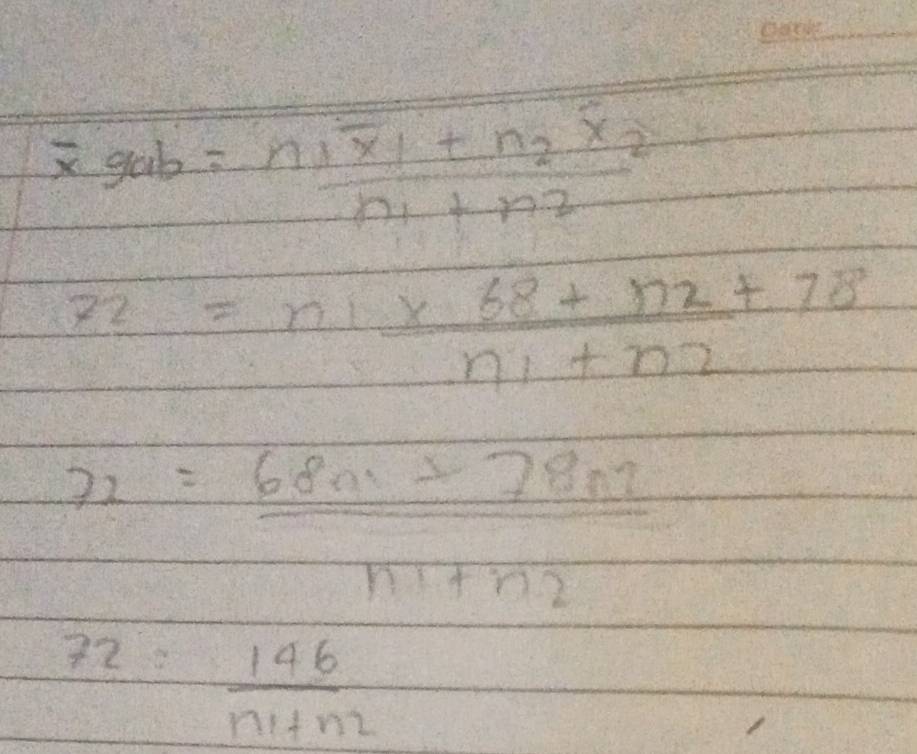 Date:
x̄ gab = n1 x̄1 + n2 x̄2
n1 + n2
72 = n1 x 68 + n2 + 78
n1 + n2
72 = 68n1 + 78n2
n1 + n2
72 = 146
n1 + n2